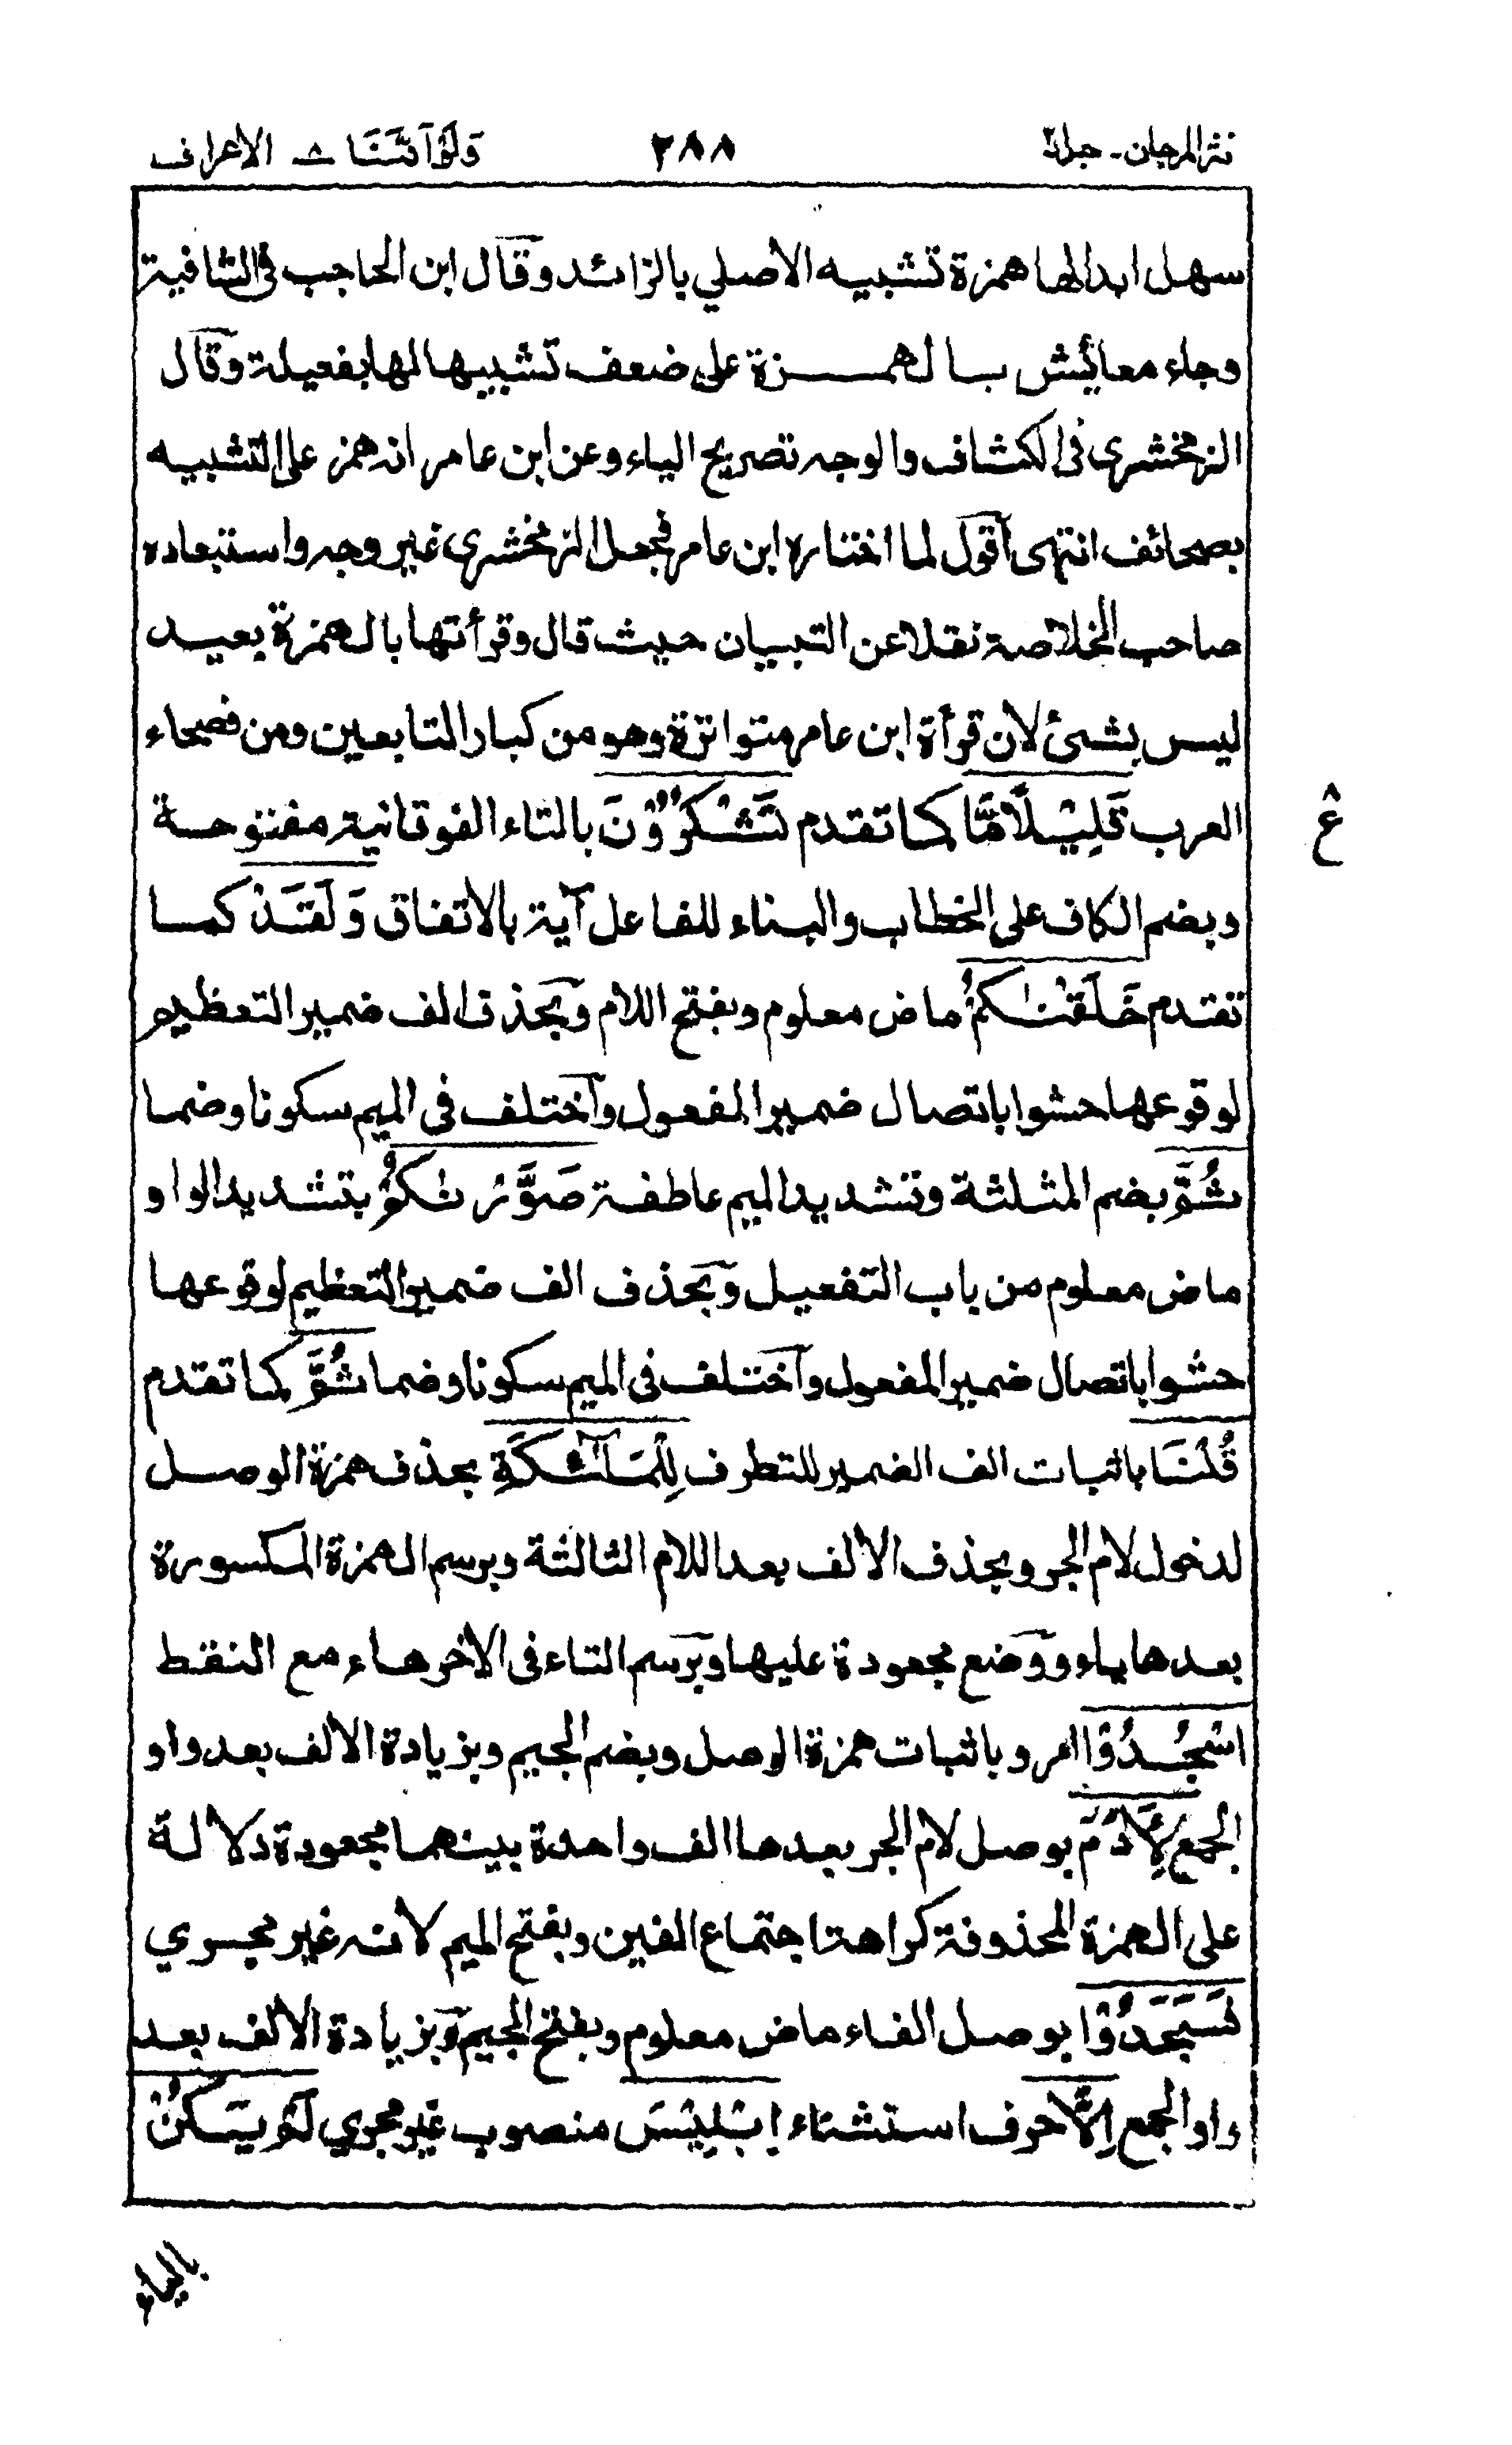 نثر المرجان - جلد٢ ٢٨٨ وَلَوْ أَنَّنَا ٨ الاعراف
سهل ابدالها همزة تشبيه الاصلي بالزائد وقال ابن الحاجب فى الشافية
وجاء معائش بالهمزة على ضعف تشبيها لها بفعيلة وقال
الزمخشرى فى الكشاف والوجه تصريح الياء وعن ابن عامر انه همز على التشبيه
بصحائف انتهى اقول لما اختاره ابن عامر فجعل الزمخشرى غير وجه واستبعاده
صاحب الخلاصة نقلا عن التبيان حيث قال وقرأتها بالهمزة بعيد
ليس بشئ لأن قرأة ابن عامر متواترة وهو من كبار التابعين ومن فصحاء
العرب قَلِيْلًا مَّا كما تقدم تَشْكُرُوْنَ بالتاء الفوقانية مفتوحة
وبضم الكاف على الخطاب والبناء للفاعل آية بالاتفاق وَلَقَدْ كما
تقدم خَلَقْنٰكُمْ ماض معلوم وبفتح اللام وبحذف الف ضمير التعظيم
لوقوعها حشوا باتصال ضمير المفعول واختلف فى الميم سكونا وضما
ثُمَّ بضم المثلثة وتشديد الميم عاطفة صَوَّرْنٰكُمْ بتشديد الواو
ماض معلوم من باب التفعيل وبحذف الف ضمير التعظيم لوقوعها
حشوا باتصال ضمير المفعول واختلف فى الميم سكونا وضما ثُمَّ كما تقدم
قُلْنَا باثبات الف الضمير للتطرف لِلْمَلٰٓئِكَةِ بحذف همزة الوصل
لدخول لام الجر وبحذف الالف بعد اللام الثالثة وبرسم الهمزة المكسورة
بعدها ياء ووضع مجعودة عليها وبرسم التاء فى الاخر هاء مع النقط
اسْجُدُوْا امر وباثبات همزة الوصل وبضم الجيم وبزيادة الالف بعد واو
الجمع لِأٰدَمَ بوصل لام الجر بعدها الف واحدة بينهما مجعودة دلالة
على الهمزة المحذوفة كراهة اجتماع الفين وبفتح الميم لأنه غير مجرى
فَسَجَدُوْا بوصل الفاء ماض معلوم وبفتح الجيم وبزيادة الالف بعد
واو الجمع إِلَّا حرف استثناء إِبْلِيْسَ منصوب غير مجرى لَمْ يَكُنْ
ع ٨